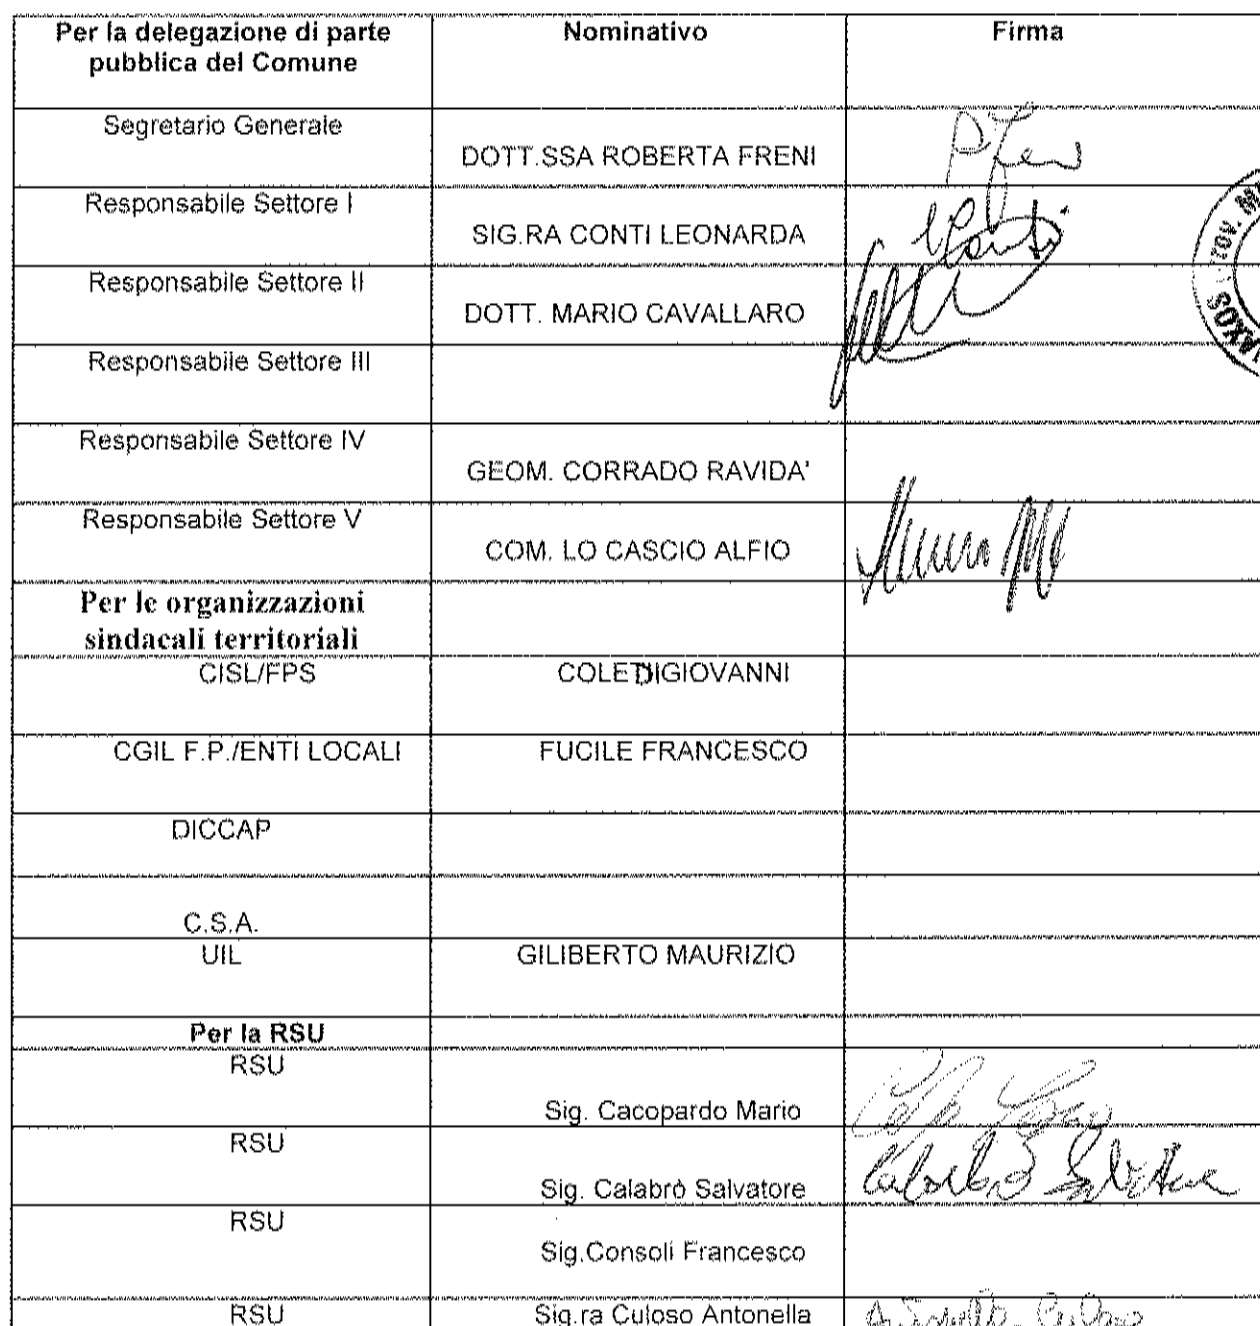 Per la delegazione di parte pubblica del Comune Nominativo Firma
Segretario Generale
DOTT.SSA ROBERTA FRENI
Responsabile Settore I
SIG.RA CONTI LEONARDA
Responsabile Settore II
DOTT. MARIO CAVALLARO
Responsabile Settore III
Responsabile Settore IV
GEOM. CORRADO RAVIDA'
Responsabile Settore V
COM. LO CASCIO ALFIO
Per le organizzazioni
sindacali territoriali
CISL/FPS COLETDIGIOVANNI
CGIL F.P./ENTI LOCALI FUCILE FRANCESCO
DICCAP
C.S.A.
UIL GILIBERTO MAURIZIO
Per la RSU
RSU
Sig. Cacopardo Mario
RSU
Sig. Calabrò Salvatore Calabrò Salvatore
RSU
Sig.Consoli Francesco
RSU Sig.ra Culoso Antonella Antonella Culoso